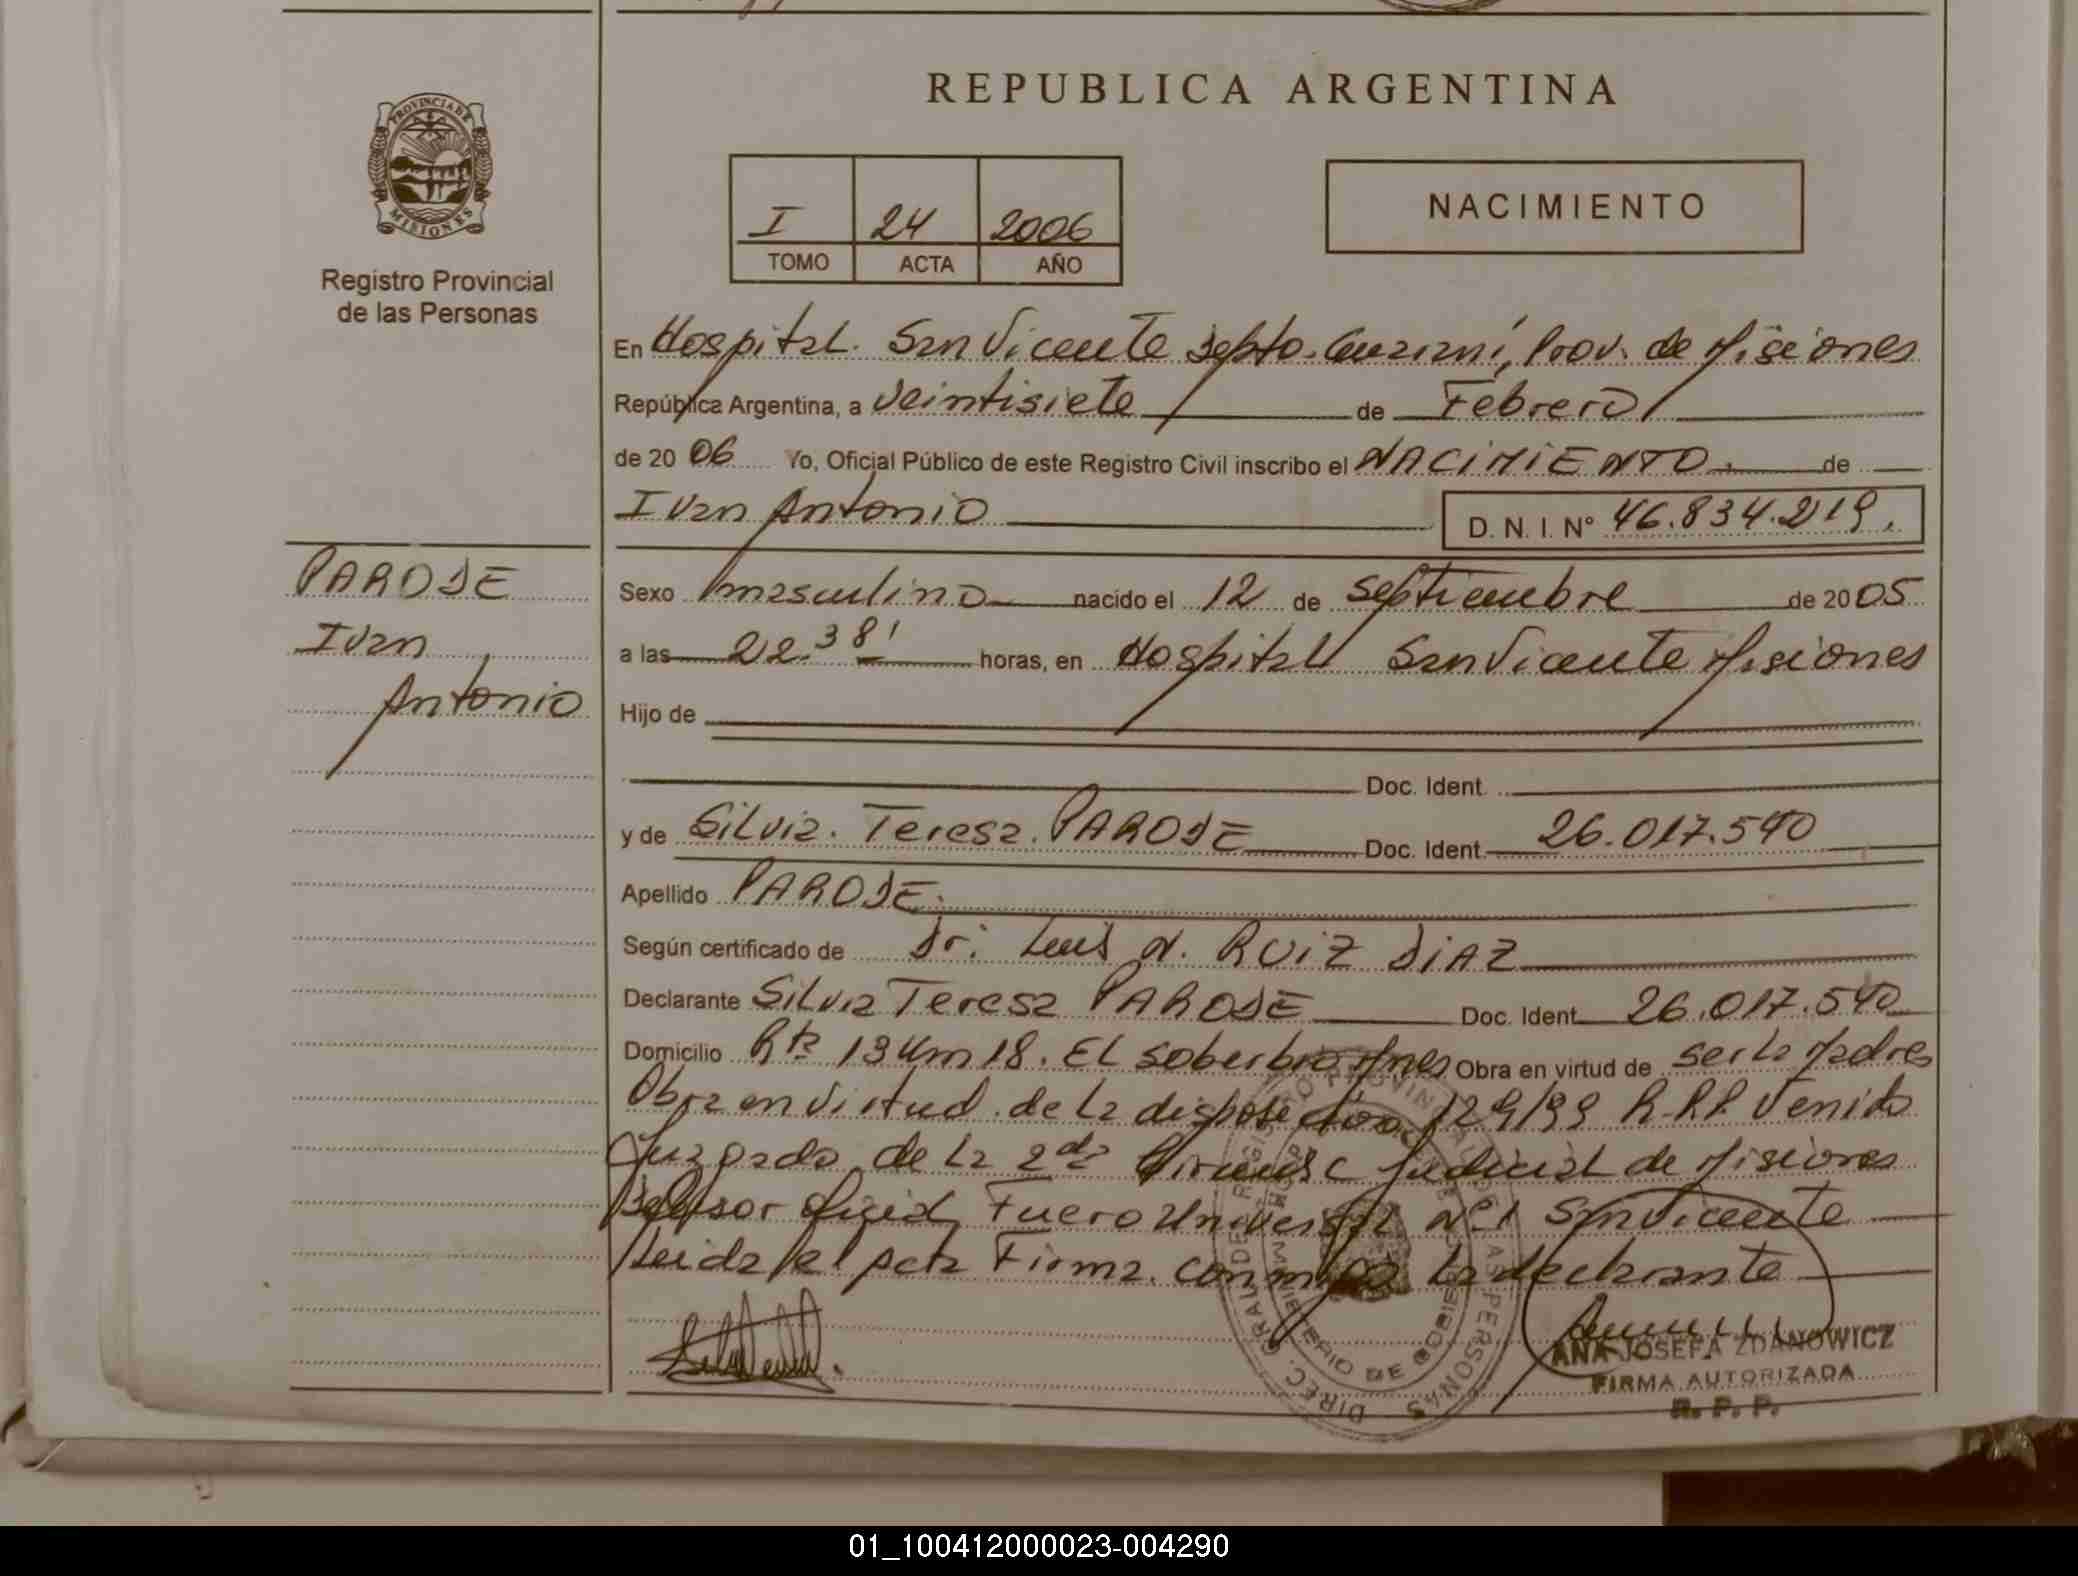 REPUBLICA ARGENTINA
PROVINCIA DE
MISIONES
Registro Provincial
de las Personas
I 24 2006
TOMO ACTA AÑO
NACIMIENTO
En Hospital. San Vicente Depto. Guarani, Prov. de Misiones
República Argentina, a Veintisiete de Febrero
de 2006 Yo, Oficial Público de este Registro Civil inscribo el NACIMIENTO. de
Ivan Antonio D. N. I. Nº 46.834.219.
PARODE
Ivan
Antonio
Sexo masculino nacido el 12 de Septiembre de 2005
a las 22.38' horas, en Hospital San Vicente Misiones
Hijo de
Doc. Ident.
y de Silvia. Teresa. PARODE Doc. Ident. 26.017.540
Apellido PARODE.
Según certificado de Dr. Luis N. RUIZ DIAZ
Declarante Silvia Teresa PARODE Doc. Ident. 26.017.540
Domicilio Rta 13 Km 18. El Soberbio Mnes Obra en virtud de ser la Madre
Obra en Virtud de la 129/99 R.P.P. Venido
Juzgado de la 2da Circunsc Judicial de Misiones
Defensor Oficial Fuero Universal Nº 1 San Vicente
Leida el Acta Firma. conmigo la declarante
DIREC. GRAL DE REGISTRO PROVINCIAL DE LAS PERSONAS
MINISTERIO DE GOBIERNO
ANA JOSEFA ZDANOWICZ
FIRMA AUTORIZADA
R. P. P.
01_100412000023-004290